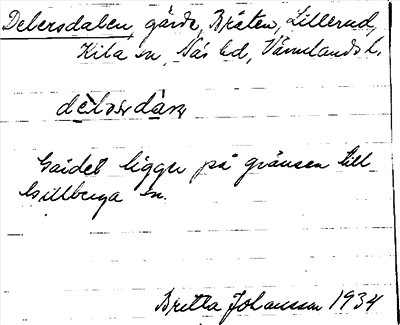 Debersdalen, gärde, Bråten, Lillerud,
Kila sn, Näs hd, Värmlands l.
Gärdet ligger på gränsen till
Gillberga sn.
Britta Johansson 1934